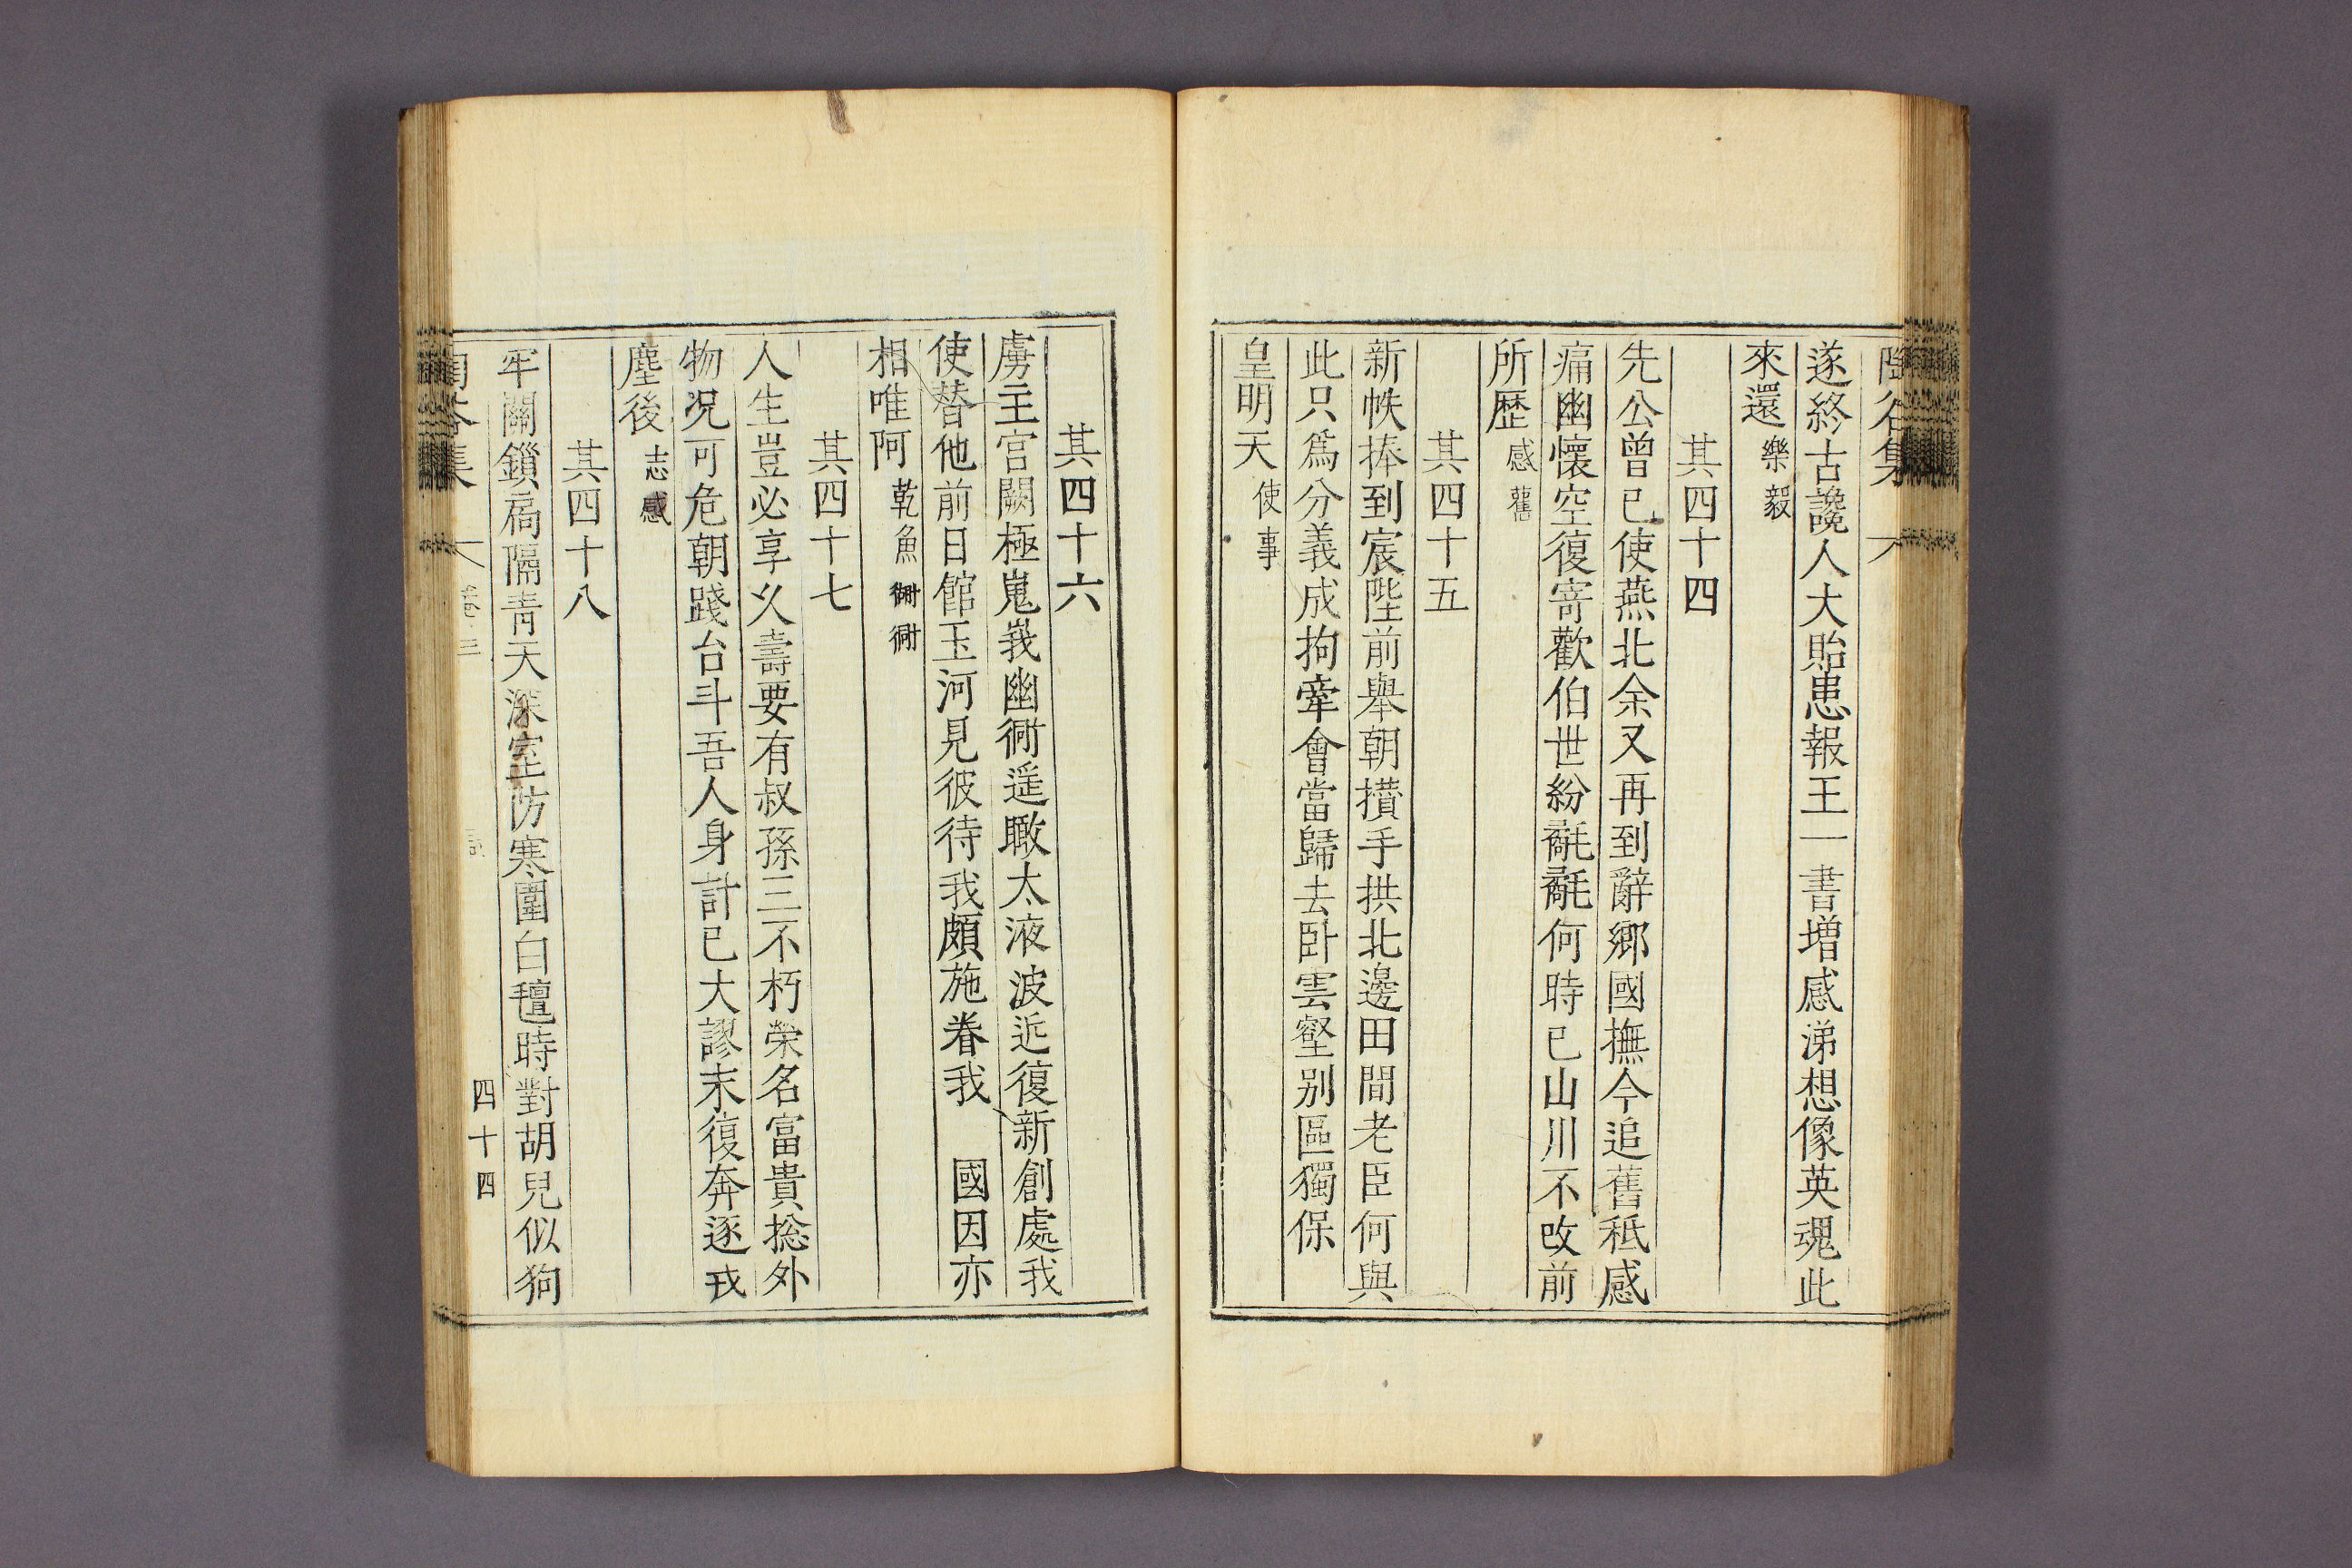 遂終古讒人大貽患報王一書增感涕想像英魂此
來還 樂毅
其四十四
先公曾已使燕北余又再到辭鄉國撫今追舊秪感
痛幽懷空復寄歡伯世紛氄氄何時已山川不改前
所歷 感舊
其四十五
新帙捧到宸陛前舉朝攢手拱北邊田間老臣何與
此只爲分義成拘牽會當歸去卧雲壑别區獨保
皇明天 使事
其四十六
虜主宮闕極嵬峩幽衕遥瞰太液波近復新創處我
使替他前日館玉河見彼待我頗施眷我 國因亦
相唯阿 乾魚衚衕
其四十七
人生豈必享久壽要有叔孫三不朽榮名富貴捴外
物况可危朝踐台斗吾人身計已大謬末復奔逐戎
塵後 志感
其四十八
牢關鎖扃隔靑天深室防寒圍白氊時對胡兒似狗
集 卷三
四十四